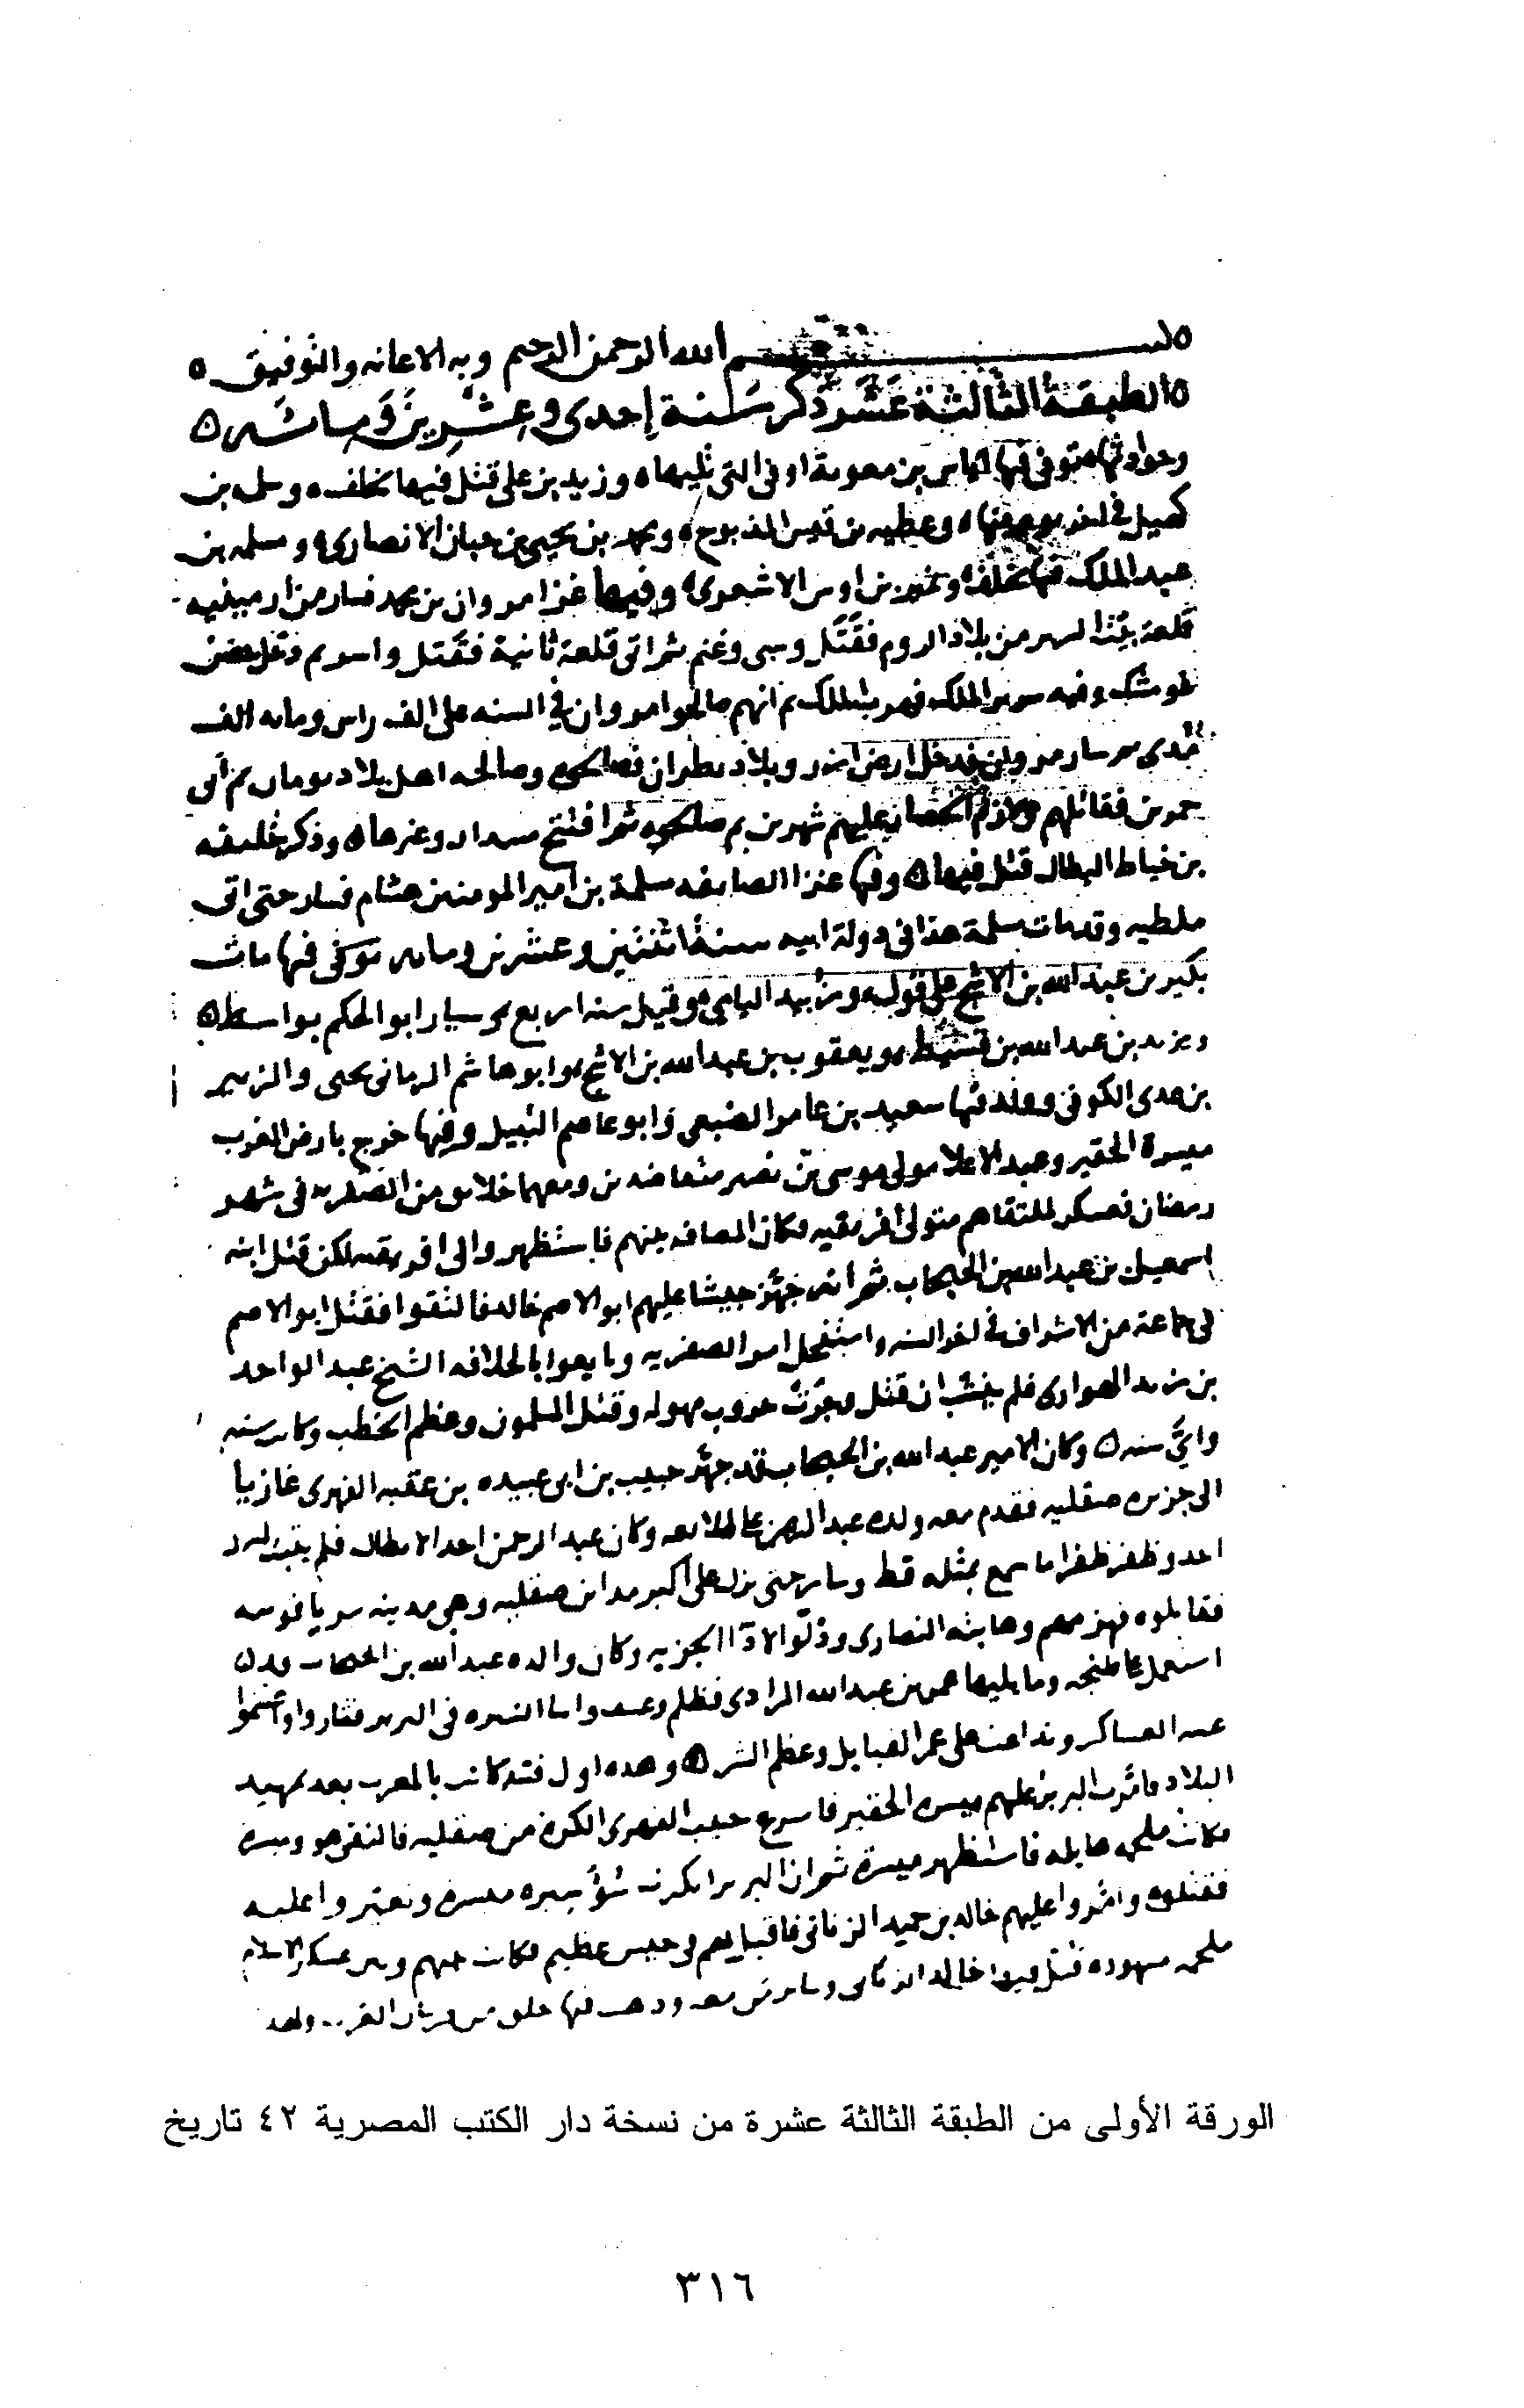 بسم الله الرحمن الرحيم وبه الاعانه والتوفيق ه
ه الطبقة الثالثة عشر ذكر سنة إحدى وعشرين ومائه ه
وحوادثها توفى فيها اياس بن معوية او فى التى تليها ه وزيد بن على قتل فيها بخلف ه وسلمه بن
كهيل فى اخر يوم منها ه وعطيه بن قيس المذبوح ه ومحمد بن يحيى بن حبان الانصارى ه ومسلمه بن
عبد الملك فيها بخلف ه ونمير بن اوس الاشعرى ه وفيها غزا مروان بن محمد فسار من ارمينيه
قلعة بيت السرير من بلاد الروم فقتل وسبى وغنم ثم اتى قلعة ثانية فقتل واسر ثم دخل حصن
غومشك وفيه سرير الملك فهرب الملك ثم انهم صالحوا مروان فى السنه على الف راس ومايه الف
مدى ثم سار مروان فدخل ارض ازر وبلاد بطران فصالحوه وصالحه اهل بلاد تومان ثم أتى
حمزين فقاتلهم ولازم الحصار عليهم شهرين ثم صالحوه ثم افتتح مسدار وغيرها ه وذكر خليفه
بن خياط البطال قتل فيها ه وفيها غزا الصايفه مسلمة بن امير المومنين هشام فسار حتى اتى
ملطيه وقد مات مسلمة هذا فى دولة ابيه سنة اثنتين وعشرين ومايه توفى فيها مات
بكير بن عبد الله بن الاشج على قول ه وزبيد اليامى ه وقيل سنه اربع ه وسيار ابو الحكم بواسط ه
ويزيد بن عبد الله بن قسيط ه ويعقوب بن عبد الله بن الاشج ه وابو هاشم الرمانى يحيى والزبير
بن عدى الكوفى وولد فيها سعيد بن عامر الضبعى وابو عاصم النبيل وفيها خرج بارض المغرب
ميسرة الحقير وعبد الاعلا مولى موسى بن نصير متعاضدين ومعهما خلايق من الصفريه فى شهر
رمضان فعسكر لملتقاهم متولى افريقيه فكان المصاف بينهم فاستظهر والى افريقيه لكن قتل ابنه
اسمعيل بن عبد الله بن الحبحاب ثم انه جهز جيشا عليهم ابو الاصم خالد فالتقوا فقتل ابو الاصم
فى جماعة من الاشراف فى اخر السنه واستفحل امر الصفريه وبايعوا بالخلافه الشيخ عبد الواحد
بن يزيد الهوارى فلم ينشب ان قتل وجرت حروب مهوله وقتل المسلمون وعظم الخطب وكانت سنه
واىّ سنه ه وكان الامير عبد الله بن الحبحاب قد جهز حبيب بن ابى عبيده بن عقبه الفهرى غازيا
الى جزيره صقليه فقدم معه ولده عبد الرحمن على طلائعه وكان عبد الرحمن احد الابطال فلم يثبت له
احد وظفر ظفرا ما سمع بمثله قط وسار حتى نزل على اكبر مداين صقليه وهى مدينه سرياقوسه
فقاتلوه فهزمهم وهابته النصارى وذلّوا لادآ الجزيه وكان والده عبد الله بن الحبحاب قد
استعمل على طنجه وما يليها عمر بن عبد الله المرادى فظلم وعسف واسا السيره فى البربر فثاروا واغتنموا
غيبه العساكر وتداعت على عمر القبايل وعظم الشر ه وهذه اول فتنه كانت بالمغرب بعد تمهيد
البلاد فامرت البربر عليهم ميسره الحقير فاسرع حبيب الفهرى الكره من صقليه فالتقى هو وميسره
فكانت ملحمه هايله فاستظهر ميسرة ثم ان البربر انكرت سُوء سيره ميسره وتغيروا عليه
فقتلوه وامروا عليهم خالد بن حميد الزناتى فاقبل بهم فى جيش عظيم فكانت بينهم وبين عسكر الاسلام
ملحمه مشهوده قتل فيها خالد الزناتى وساير من معه وذهب فيها خلق من فرسان العرب
الورقة الأولى من الطبقة الثالثة عشرة من نسخة دار الكتب المصرية ٤٢ تاريخ
٣١٦